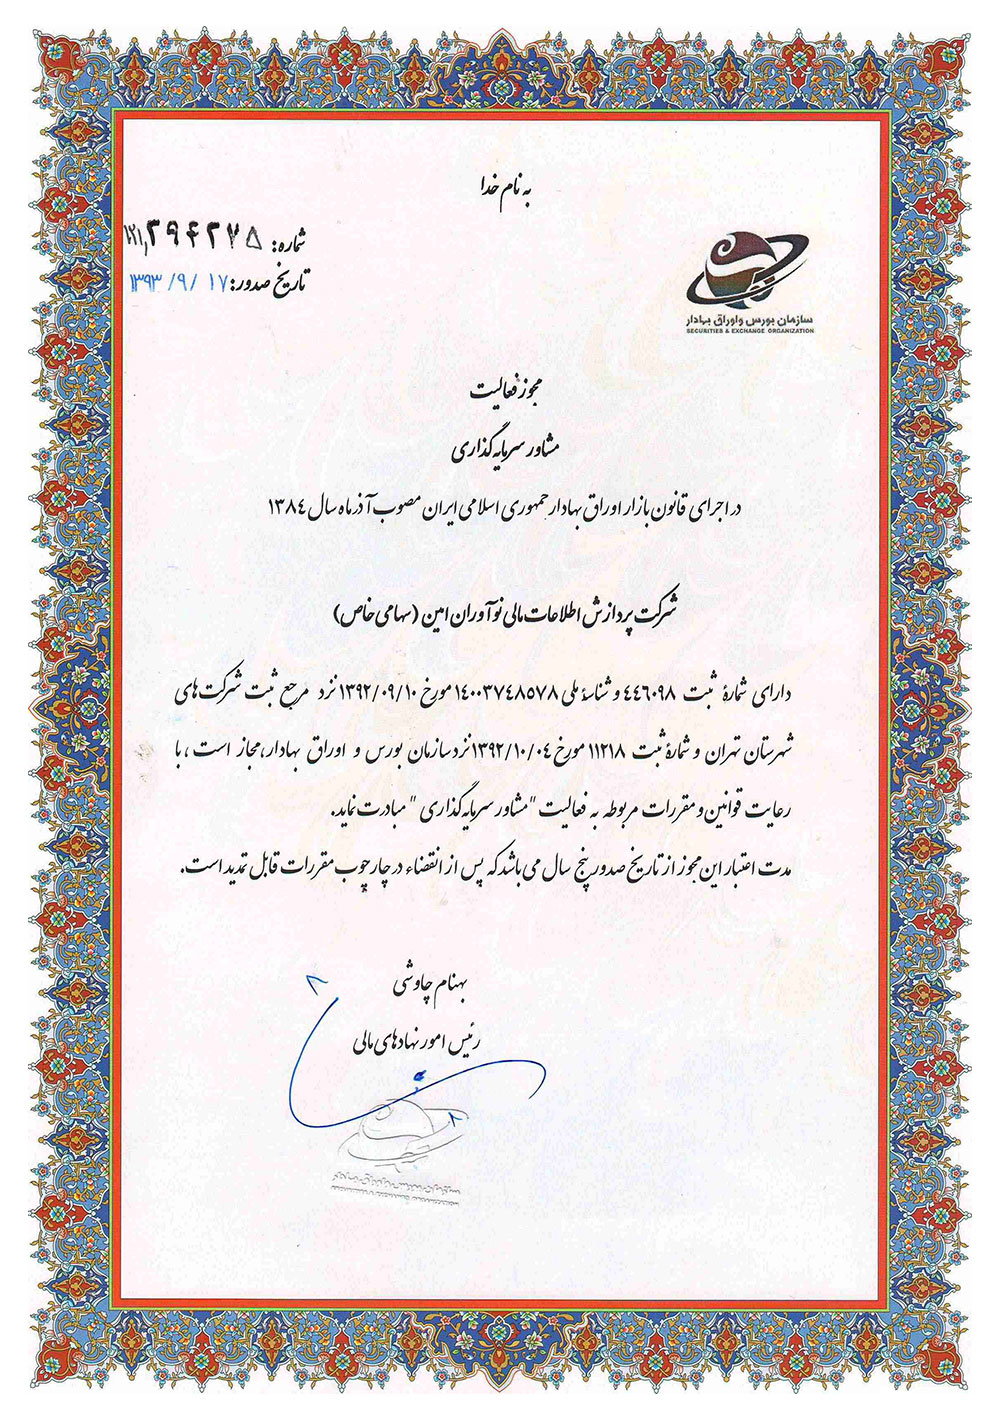 به نام خدا
شماره: ۱۲۱,۲۹۴۲۷۵
تاریخ صدور: ۱۳۹۳/۹/۱۷
سازمان بورس و اوراق بهادار
SECURITIES & EXCHANGE ORGANIZATION
مجوز فعالیت
مشاور سرمایه گذاری
در اجرای قانون بازار اوراق بهادار جمهوری اسلامی ایران مصوب آذر ماه سال ۱۳۸۴
شرکت پردازش اطلاعات مالی نوآوران امین (سهامی خاص)
دارای شمارهٔ ثبت ۴۴۶۰۹۸ و شناسهٔ ملی ۱۴۰۰۳۷۴۸۵۷۸ مورخ ۱۳۹۲/۰۹/۱۰ نزد مرجع ثبت شرکت های
شهرستان تهران و شمارهٔ ثبت ۱۱۲۱۸ مورخ ۱۳۹۲/۱۰/۰۴ نزد سازمان بورس و اوراق بهادار، مجاز است ، با
رعایت قوانین و مقررات مربوطه به فعالیت "مشاور سرمایه گذاری " مبادرت نماید.
مدت اعتبار این مجوز از تاریخ صدور پنج سال می باشد که پس از انقضاء در چارچوب مقررات قابل تمدید است.
بهنام چاوشی
رئیس امور نهادهای مالی